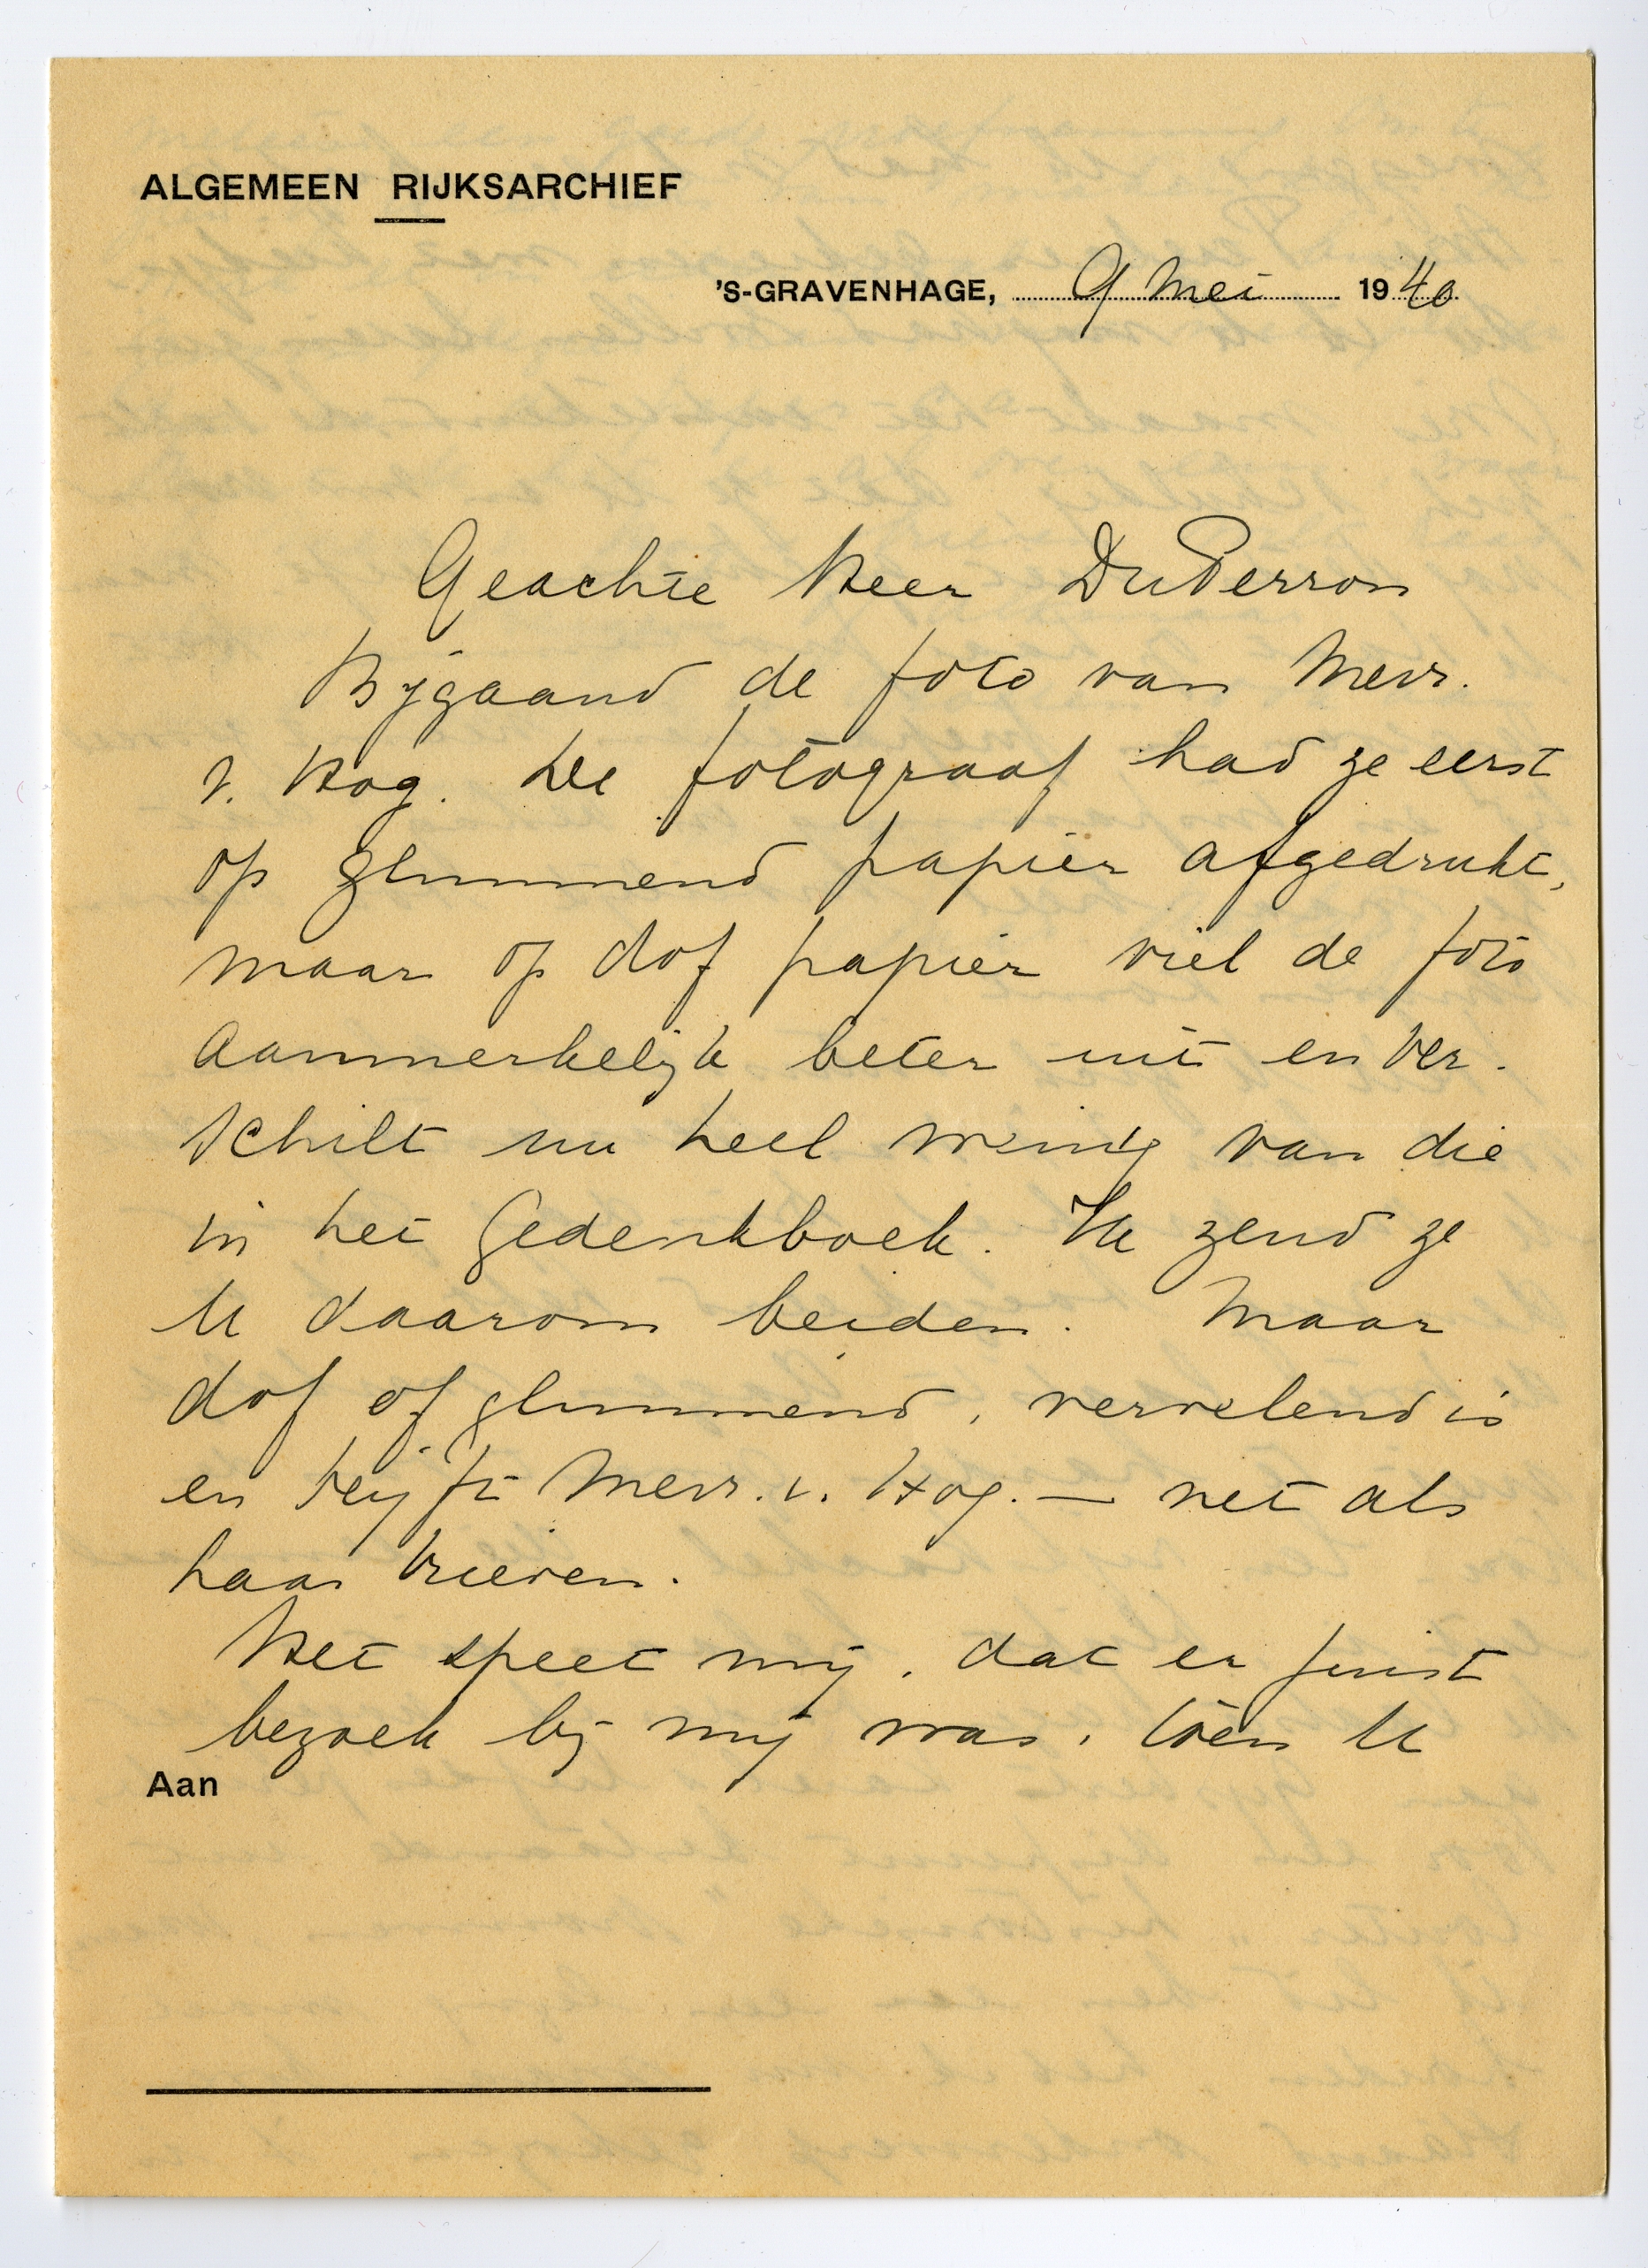 ALGEMEEN RIJKSARCHIEF
'S-GRAVENHAGE, 9 Mei 1940
Geachte Heer Du Perron
Bijgaand de foto van Mevr.
v. Hog. De fotograaf had ze eerst
op glimmend papier afgedrukt,
maar op dof papier viel de foto
aanmerkelijk beter uit en ver-
schilt nu heel weinig van die
in het Gedenkboek. Ik zend ze
U daarom beiden. Maar
dof of glimmend, vervelend is
en blijft Mevr. v. Hog. — net als
haar brieven.
Het speet mij, dat er juist
bezoek bij mij was, toen U
Aan